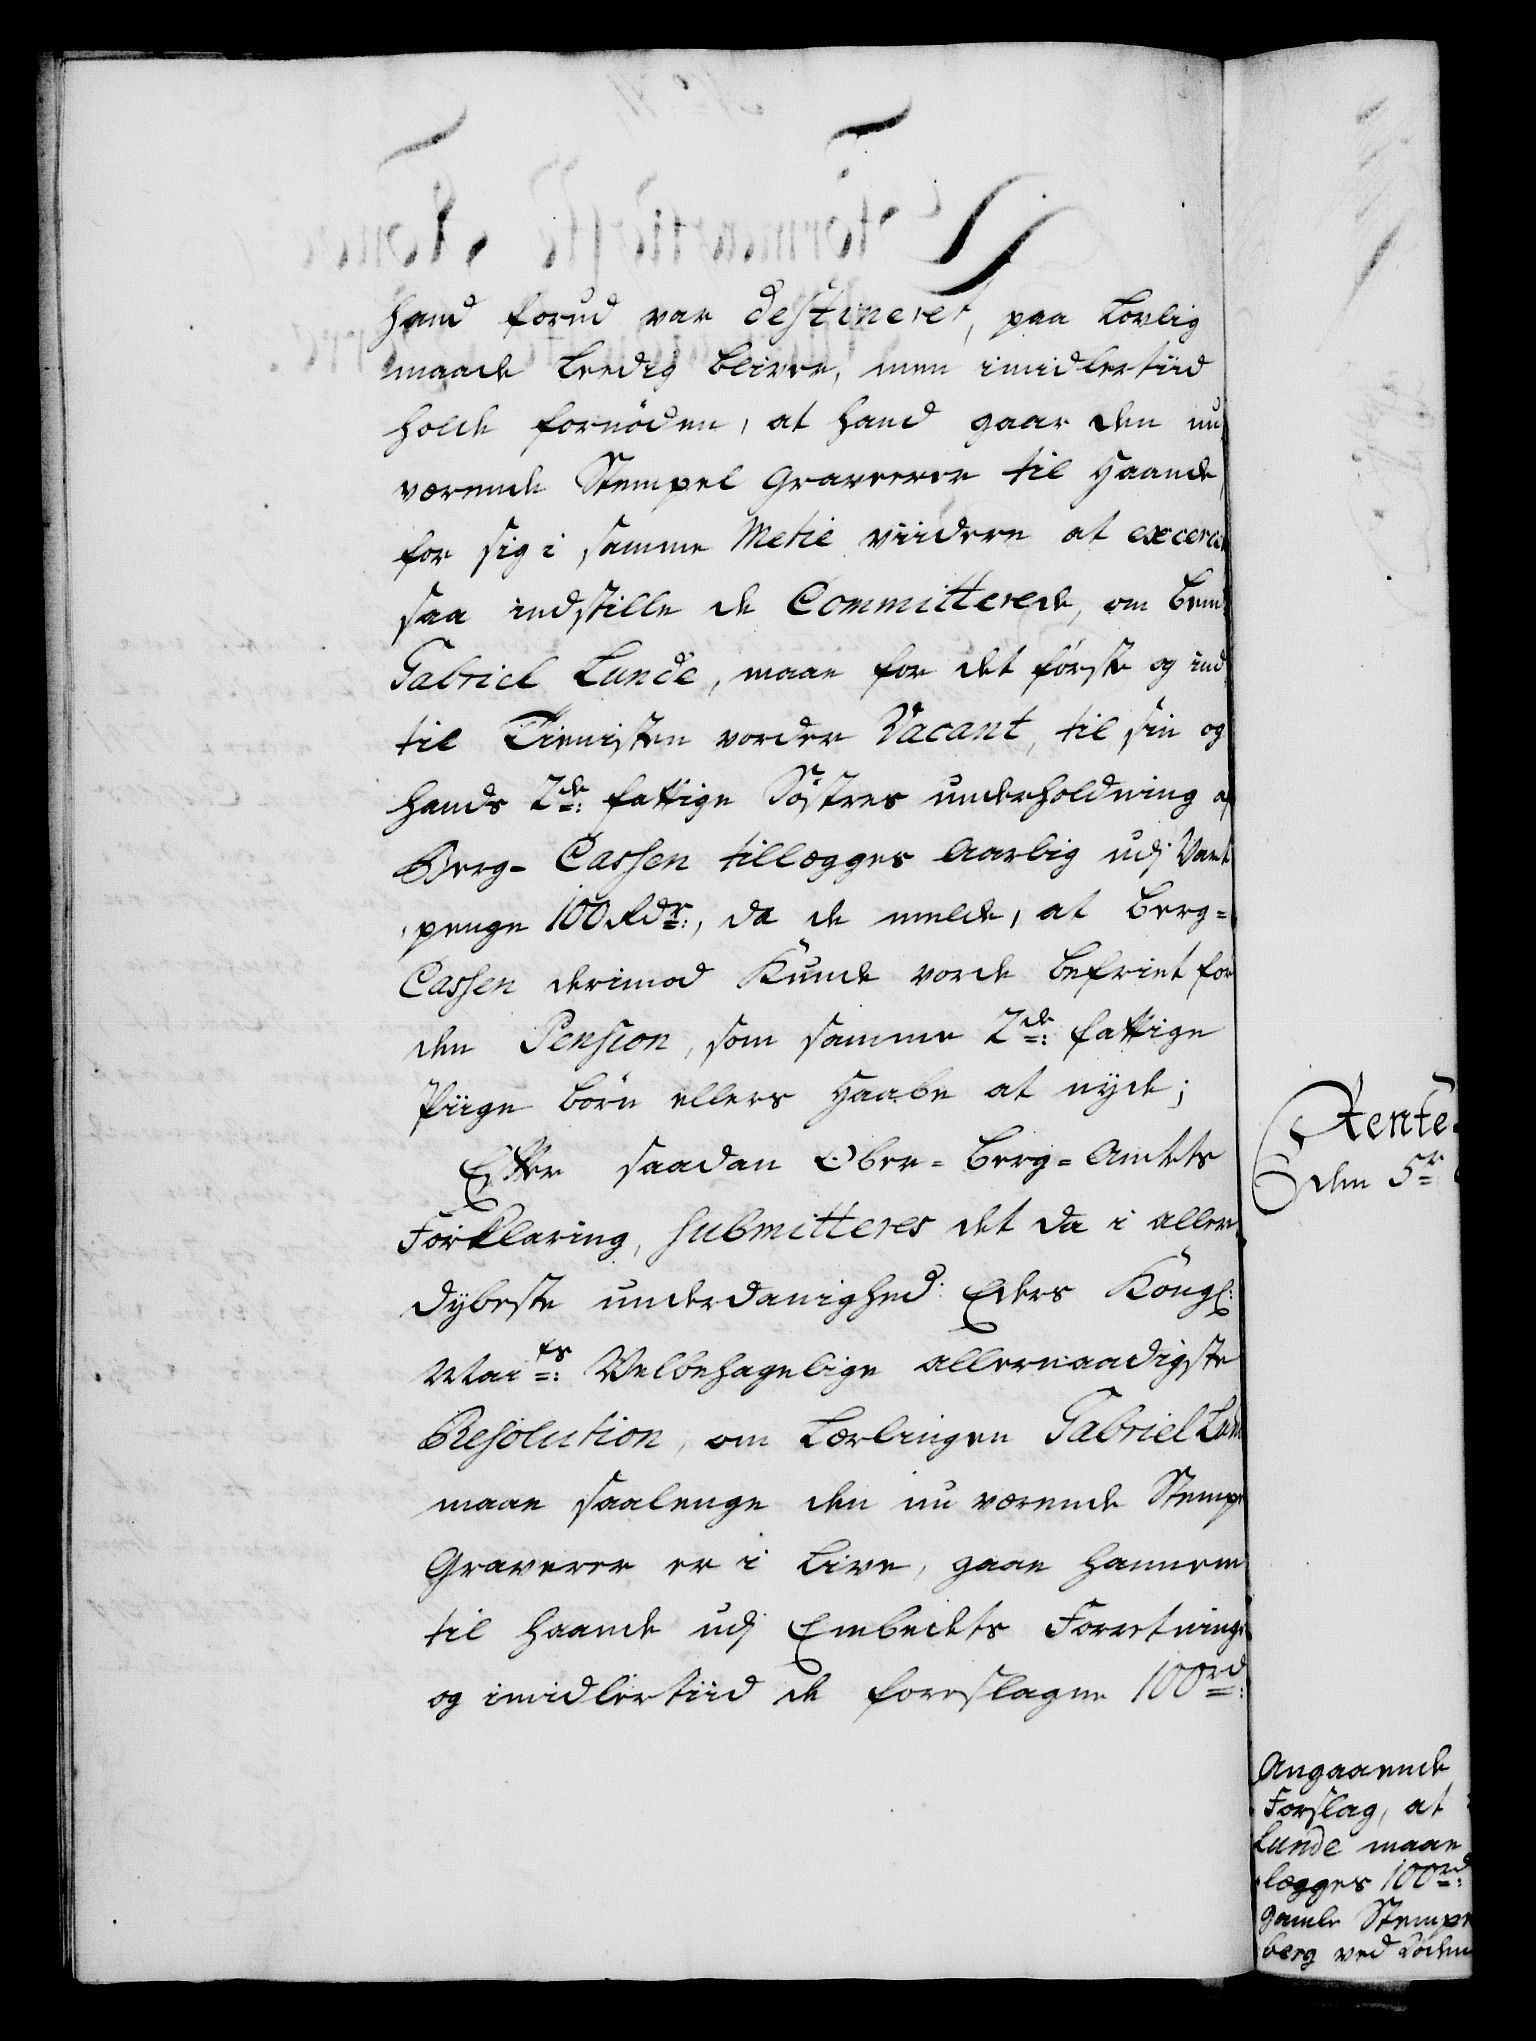 hand forud var destineret, paa lovlig
maade leedig bliver, men imidlertiid
holde fornöden, at hand gaar den nu
værende Stempel Graverer til Haande,
for sig i samme Metie viidere at excerce
saa indstille de Committerede, om bem:
Gabriel Lunde, maae for det förste og ind
til Tienisten vorder Vacant, til sin og
hands 2de: fattige Söstres underholdning af
Berg-Cassen tillægges Aarlig udj Vart
penge 100 Rdr:, da de melde, at Berg=
Cassen derimod Kunde vorde befriet for
den Pension, som samme 2de: fattige
Piige börn ellers Haabe at nyde;
Efter saadan Ober=Berg=Amtets
Forklaring, submitteres det da i aller
dybeste underdanighed: Eders Kongl:
Maites: Velbehagelige allernaadigste
Resolution, om Lærlingen Gabriel Lun
maae saalenge den nu værende Stempe
Graverer er i Live, gaae hannem
til Haande udj Embedets Forretning
og imidlertiid de foreslagne 100 rd:
Rente
den 5te
Angaaende
Forslag, at
Lunde maae
lægges 100 rd:
gamle Stempe
berg ved